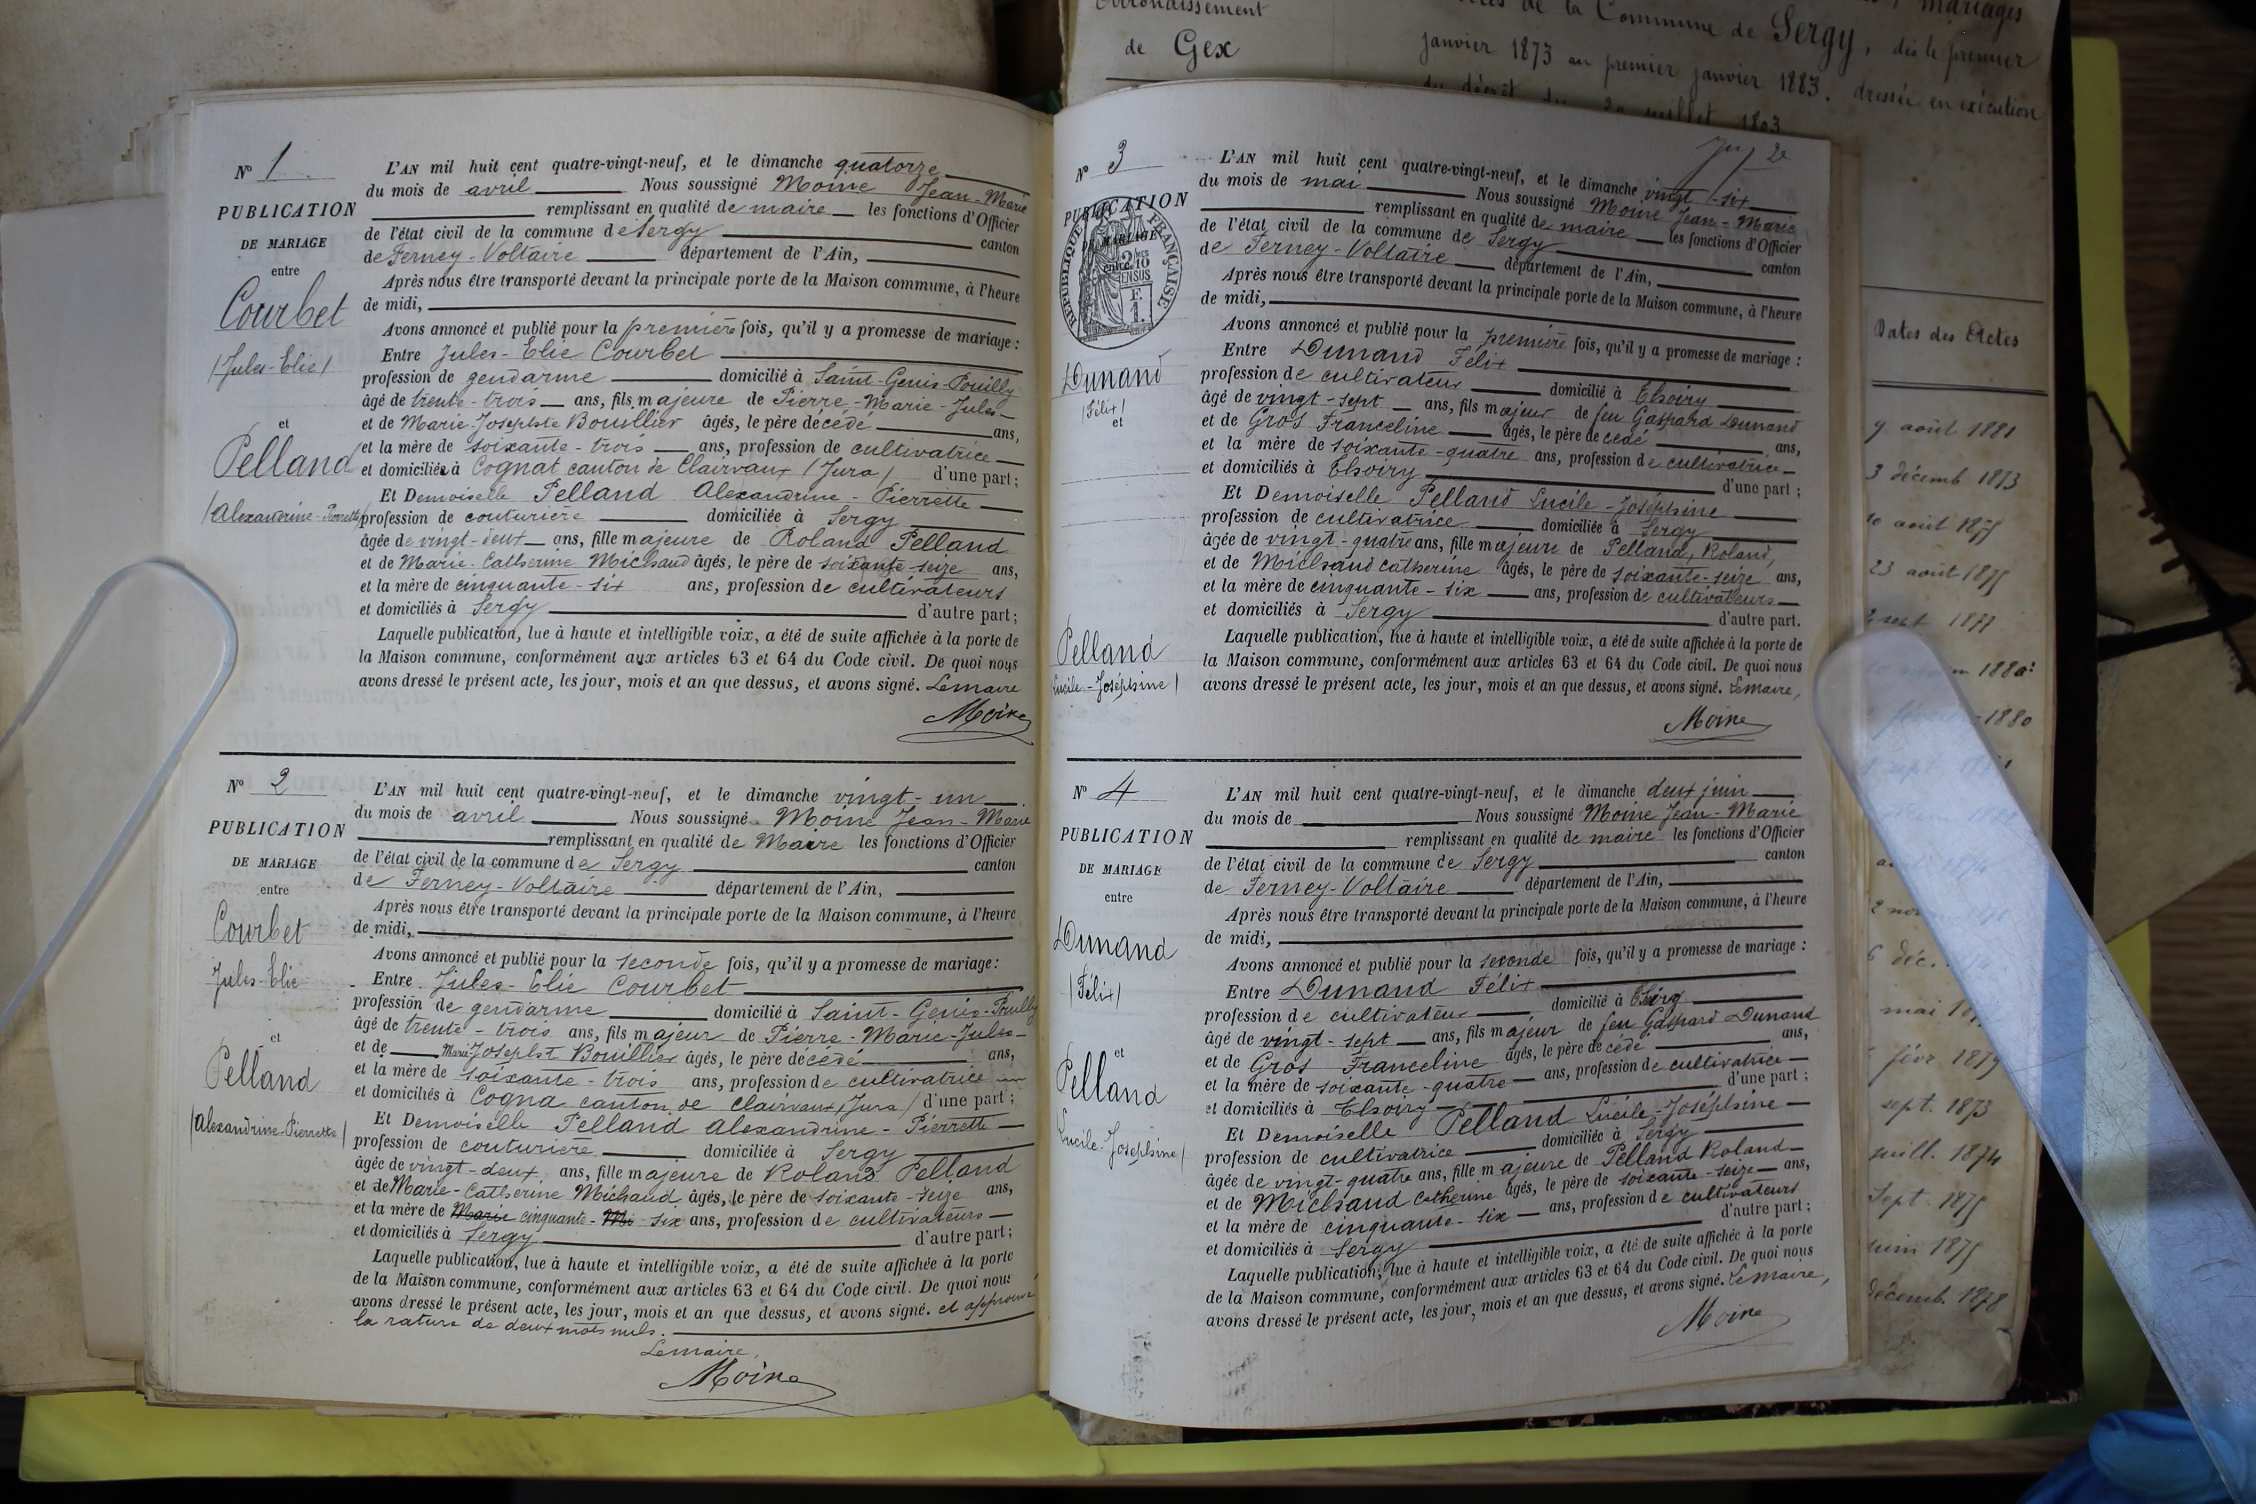 N° 1
PUBLICATION
DE MARIAGE
entre
Courbet
(Jules-Elie)
et
Pelland
(Alexandrine-Pierrette)
L'AN mil huit cent quatre-vingt-neuf, et le dimanche quatorze
du mois de avril Nous soussigné Moine Jean-Marie
remplissant en qualité de maire les fonctions d'Officier
de l'état civil de la commune de Sergy canton
de Ferney-Voltaire département de l'Ain,
Après nous être transporté devant la principale porte de la Maison commune, à l'heure
de midi,
Avons annoncé et publié pour la première fois, qu'il y a promesse de mariage :
Entre Jules-Elie Courbet
profession de gendarme domicilié à Saint-Genis-Pouilly
âgé de trente-trois ans, fils majeure de Pierre-Marie-Jules-
et de Marie-Josephte Bouillier âgés, le père décédé ans,
et la mère de soixante-trois ans, profession de cultivatrice
et domiciliés à Cognat canton de Clairvaux (Jura) d'une part ;
Et Demoiselle Pelland Alexandrine-Pierrette
profession de couturière domiciliée à Sergy
âgée de vingt-deux ans, fille majeure de Roland Pelland
et de Marie-Catherine Michaud âgés, le père de soixante-seize ans,
et la mère de cinquante-six ans, profession de cultivateurs
et domiciliés à Sergy d'autre part ;
Laquelle publication, lue à haute et intelligible voix, a été de suite affichée à la porte de
la Maison commune, conformément aux articles 63 et 64 du Code civil. De quoi nous
avons dressé le présent acte, les jour, mois et an que dessus, et avons signé. Lemaire
Moine
N° 2
PUBLICATION
DE MARIAGE
entre
Courbet
Jules-Elie
et
Pelland
(Alexandrine-Pierrette)
L'AN mil huit cent quatre-vingt-neuf, et le dimanche vingt-un
du mois de avril Nous soussigné Moine Jean-Marie
remplissant en qualité de Maire les fonctions d'Officier
de l'état civil de la commune de Sergy canton
de Ferney-Voltaire département de l'Ain,
Après nous être transporté devant la principale porte de la Maison commune, à l'heure
de midi,
Avons annoncé et publié pour la seconde fois, qu'il y a promesse de mariage :
Entre Jules-Elie Courbet
profession de gendarme domicilié à Saint-Genis-Pouilly
âgé de trente-trois ans, fils majeur de Pierre-Marie-Jules-
et de Marie-Josephte Bouillier âgés, le père décédé ans,
et la mère de soixante-trois ans, profession de cultivatrice
et domiciliés à Cogna canton de Clairvaux (Jura) d'une part ;
Et Demoiselle Pelland Alexandrine-Pierrette
profession de couturière domiciliée à Sergy
âgée de vingt-deux ans, fille majeure de Roland Pelland
et de Marie-Catherine Michaud âgés, le père de soixante-seize ans,
et la mère de Marie cinquante-Mi-six ans, profession de cultivateurs
et domiciliés à Sergy d'autre part ;
Laquelle publication, lue à haute et intelligible voix, a été de suite affichée à la porte
de la Maison commune, conformément aux articles 63 et 64 du Code civil. De quoi nous
avons dressé le présent acte, les jour, mois et an que dessus, et avons signé. et approuvé
la rature de deux mots nuls.
Lemaire,
Moine
2e
N° 3
PUBLICATION
DE MARIAGE
entre
RÉPUBLIQUE FRANÇAISE
2/10 EN SUS
F. 1.
Dunand
(Félix)
et
Pelland
Lucile-Joséphine)
L'AN mil huit cent quatre-vingt-neuf, et le dimanche vingt-six
du mois de mai Nous soussigné Moine Jean-Marie
remplissant en qualité de maire les fonctions d'Officier
de l'état civil de la commune de Sergy canton
de Ferney-Voltaire département de l'Ain,
Après nous être transporté devant la principale porte de la Maison commune, à l'heure
de midi,
Avons annoncé et publié pour la première fois, qu'il y a promesse de mariage :
Entre Dunand Félix
profession de cultivateur domicilié à Thoiry
âgé de vingt-sept ans, fils majeur de feu Gaspard Dunand
et de Gros Franceline âgés, le père décédé ans,
et la mère de soixante-quatre ans, profession de cultivatrice
et domiciliés à Thoiry d'une part ;
Et Demoiselle Pelland Lucile-Joséphine
profession de cultivatrice domiciliée à Sergy
âgée de vingt-quatre ans, fille majeure de Pelland, Roland,
et de Michaud Catherine âgés, le père de soixante-seize ans,
et la mère de cinquante-six ans, profession de cultivateurs
et domiciliés à Sergy d'autre part.
Laquelle publication, lue à haute et intelligible voix, a été de suite affichée à la porte de
la Maison commune, conformément aux articles 63 et 64 du Code civil. De quoi nous
avons dressé le présent acte, les jour, mois et an que dessus, et avons signé. Lemaire,
Moine
N° 4
PUBLICATION
DE MARIAGE
entre
Dunand
(Félix)
et
Pelland
Lucile-Joséphine)
L'AN mil huit cent quatre-vingt-neuf, et le dimanche deux juin
du mois de Nous soussigné Moine Jean-Marie
remplissant en qualité de maire les fonctions d'Officier
de l'état civil de la commune de Sergy canton
de Ferney-Voltaire département de l'Ain,
Après nous être transporté devant la principale porte de la Maison commune, à l'heure
de midi,
Avons annoncé et publié pour la seconde fois, qu'il y a promesse de mariage :
Entre Dunand Félix
profession de cultivateur domicilié à Thoiry
âgé de vingt-sept ans, fils majeur de feu Gaspard Dunand
et de Gros Franceline âgés, le père décédé ans,
et la mère de soixante-quatre ans, profession de cultivatrice
et domiciliés à Thoiry d'une part ;
Et Demoiselle Pelland Lucile-Joséphine
profession de cultivatrice domiciliée à Sergy
âgée de vingt-quatre ans, fille majeure de Pelland Roland
et de Michaud Catherine âgés, le père de soixante-seize ans,
et la mère de cinquante-six ans, profession de cultivateurs
et domiciliés à Sergy d'autre part ;
Laquelle publication, lue à haute et intelligible voix, a été de suite affichée à la porte
de la Maison commune, conformément aux articles 63 et 64 du Code civil. De quoi nous
avons dressé le présent acte, les jour, mois et an que dessus, et avons signé. Lemaire,
Moine
Arrondissement
de Gex
mariages
de la Commune de Sergy, dès le premier
janvier 1873 au premier janvier 1883. dressée en exécution
du décret du 20 juillet 1803
Dates des Actes
9 août 1881
3 décemb 1873
10 août 1875
23 août 1875
sept 1877
1880
février 1880
mai
févr. 1879
sept. 1873
juill. 1874
Sept. 1875
juin 1875
décemb. 1878